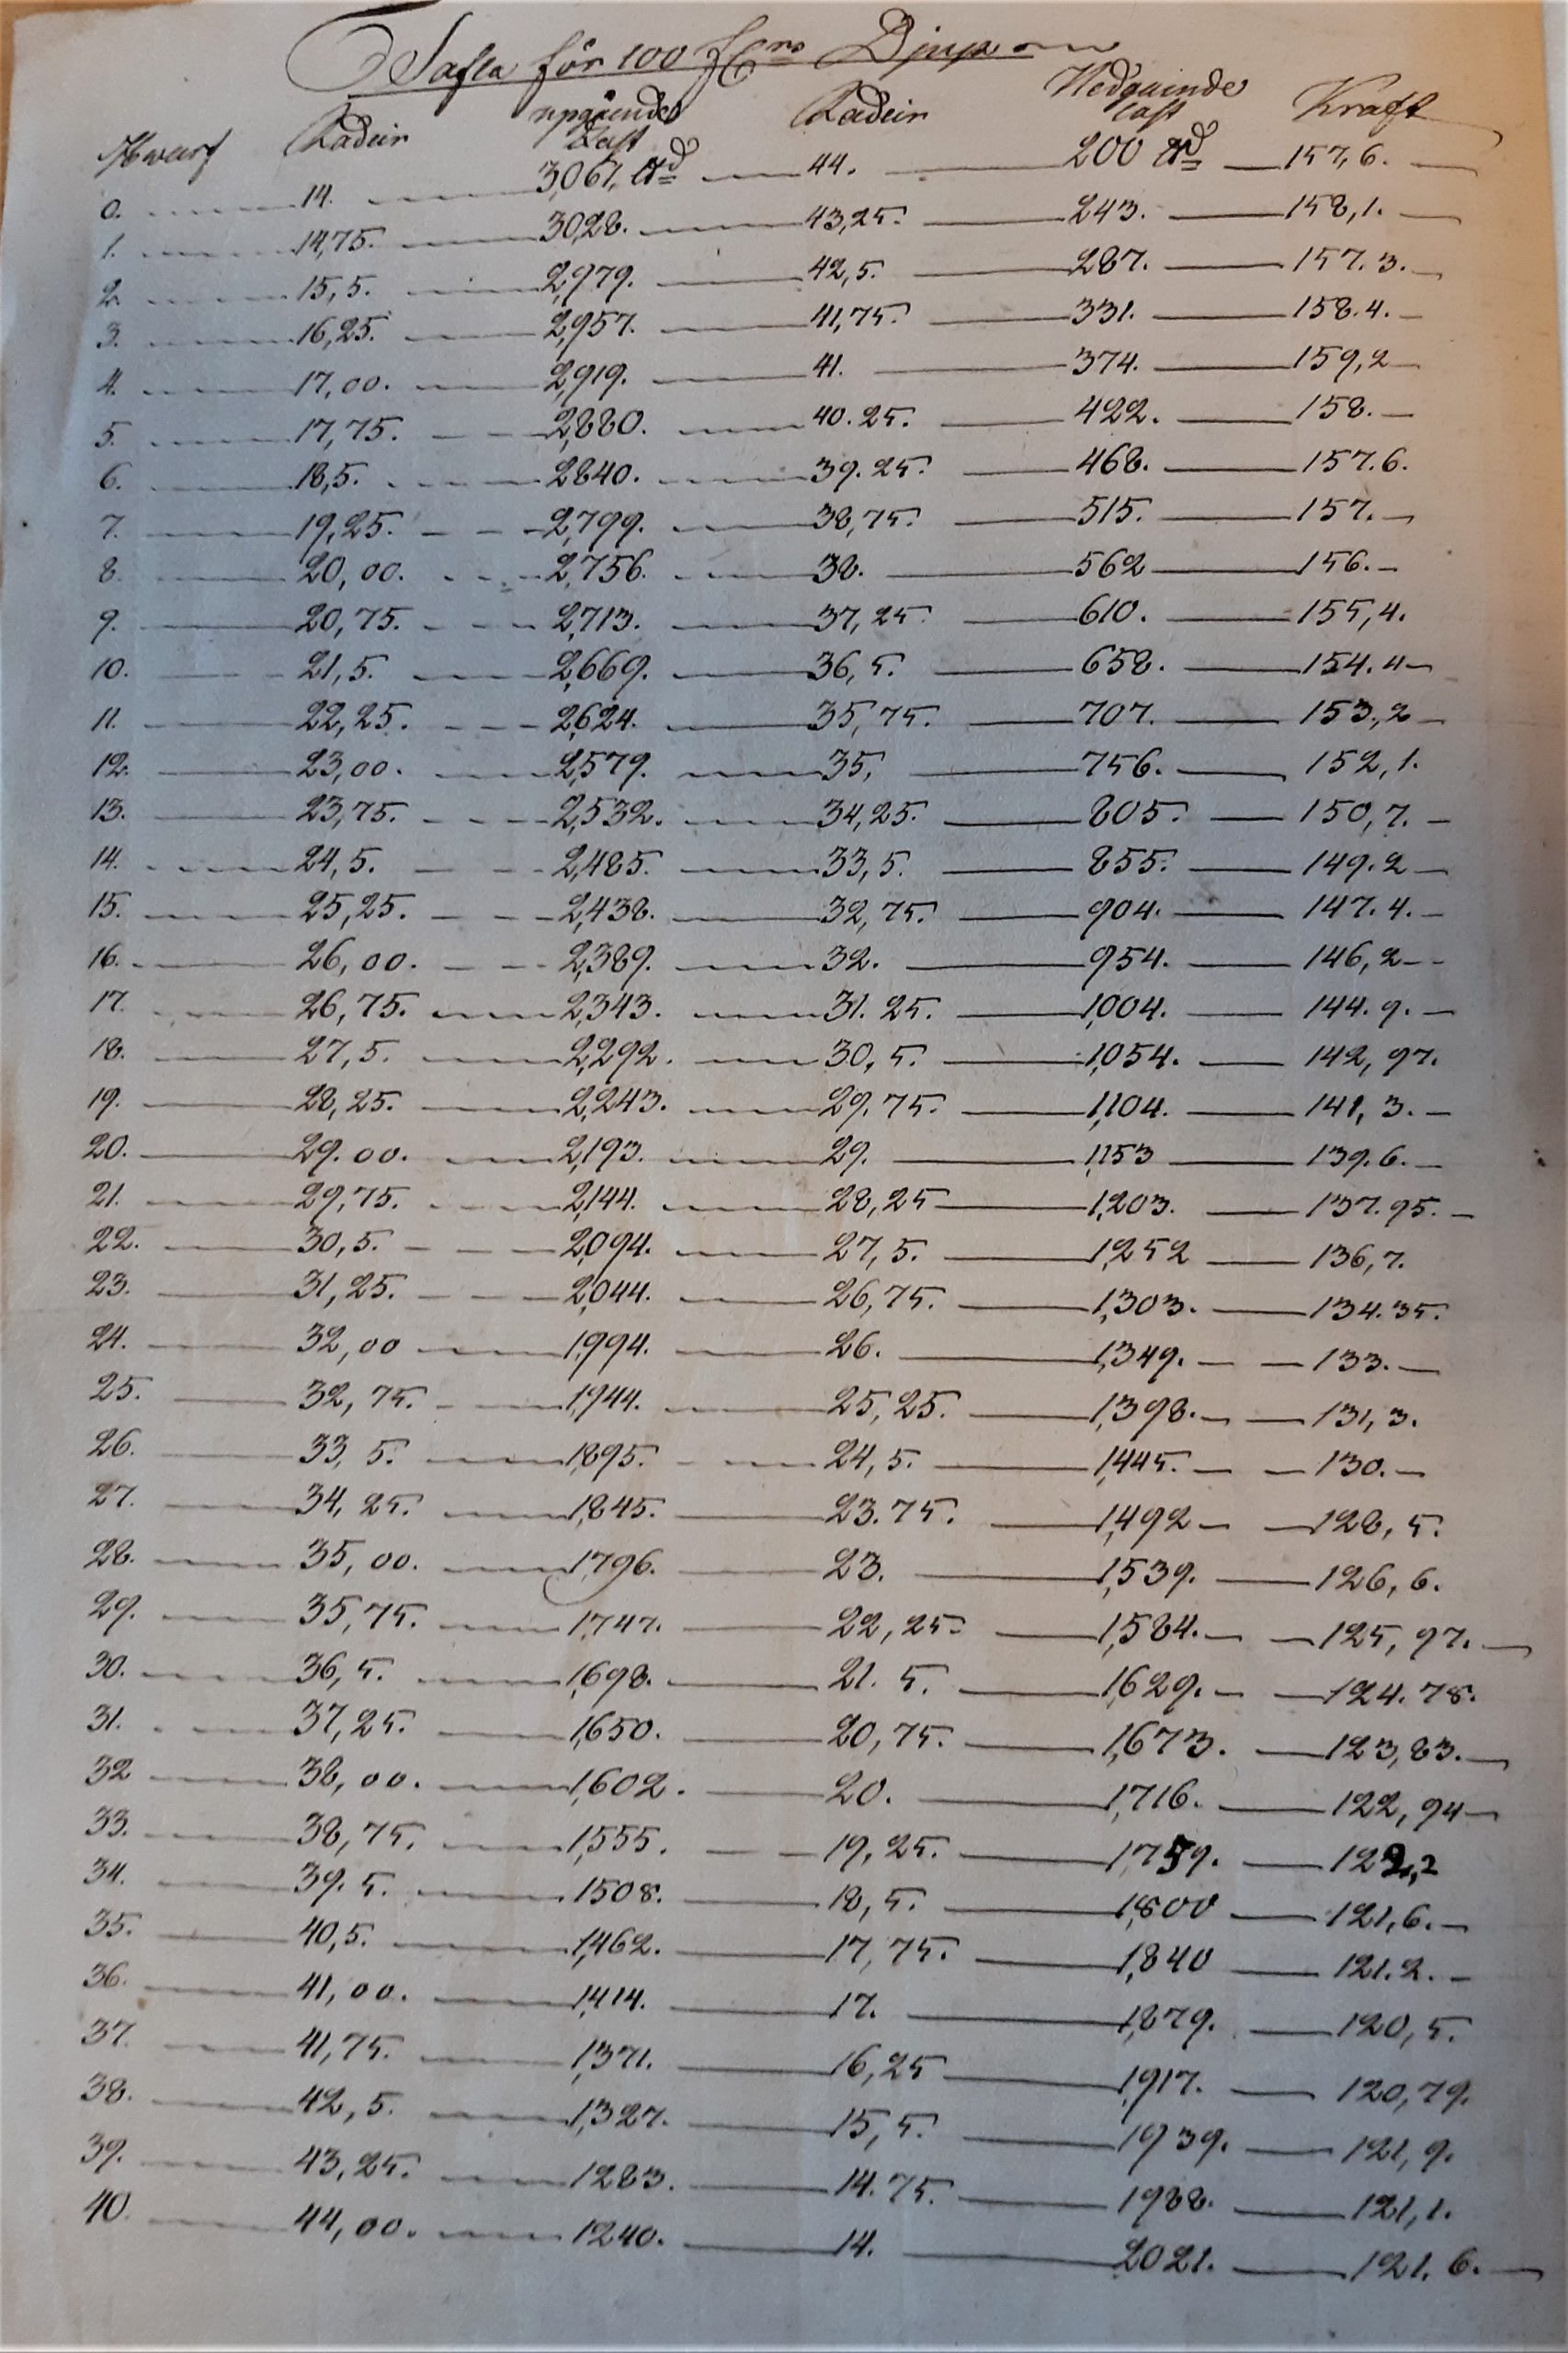 Tafla för 100 fmrs Djup
Hwarf Radier upgående Last Radier Nedgående Last Kraft
0. 14. 3,067. ℔d 44. 200 ℔d 157,6.
1. 14,75. 3028. 43,25. 243. 158,1.
2. 15,5. 2,979. 42,5. 287. 157.3.
3. 16,25. 2,957. 41,75. 331. 158.4.
4. 17,00. 2,919. 41. 374. 159,2
5. 17,75. 2,880. 40.25. 422. 158.
6. 18,5. 2840. 39.25. 468. 157.6.
7. 19,25. 2,799. 38,75. 515. 157.
8. 20,00. 2,756. 38. 562 156.
9. 20,75. 2,713. 37,25. 610. 155,4.
10. 21,5. 2,669. 36,5. 658. 154.4
11. 22,25. 2,624. 35,75. 707. 153,2
12. 23,00. 2,579. 35, 756. 152,1.
13. 23,75. 2,532. 34,25. 805. 150,7.
14. 24,5. 2,485. 33,5. 855. 149.2
15. 25,25. 2,438. 32,75. 904. 147.4.
16. 26,00. 2,389. 32. 954. 146,2
17. 26,75. 2,343. 31.25. 1,004. 144.9.
18. 27,5. 2,292. 30,5. 1,054. 142,97.
19. 28,25. 2,243. 29,75. 1,104. 141,3.
20. 29.00. 2,193. 29. 1,153 139.6.
21. 29,75. 2,144. 28,25 1,203. 137.95.
22. 30,5. 2,094. 27,5. 1,252 136,7.
23. 31,25. 2,044. 26,75. 1,303. 134.35.
24. 32,00 1,994. 26. 1,349. 133.
25. 32,75. 1,944. 25,25. 1,398. 131,3.
26. 33,5. 1,895. 24,5. 1,445. 130.
27. 34,25. 1,845. 23.75. 1,492 128,5.
28. 35,00. 1,796. 23. 1,539. 126,6.
29. 35,75. 1,747. 22,25. 1,584. 125,97.
30. 36,5. 1,698. 21.5. 1,629. 124.78.
31. 37,25. 1,650. 20,75. 1,673. 123,83.
32 38,00. 1,602. 20. 1,716. 122,94
33. 38,75. 1,555. 19,25. 1,759. 122,2
34. 39.5. 1508. 18,5. 1,800 121,6.
35. 40,5. 1,462. 17,75. 1,840 121.2.
36. 41,00. 1,414. 17. 1,879. 120,5.
37. 41,75. 1,371. 16,25 1,917. 120,79.
38. 42,5. 1,327. 15,5. 1939. 121,9.
39. 43,25. 1283. 14.75. 1988. 121,1.
40. 44,00. 1240. 14. 2021. 121.6.